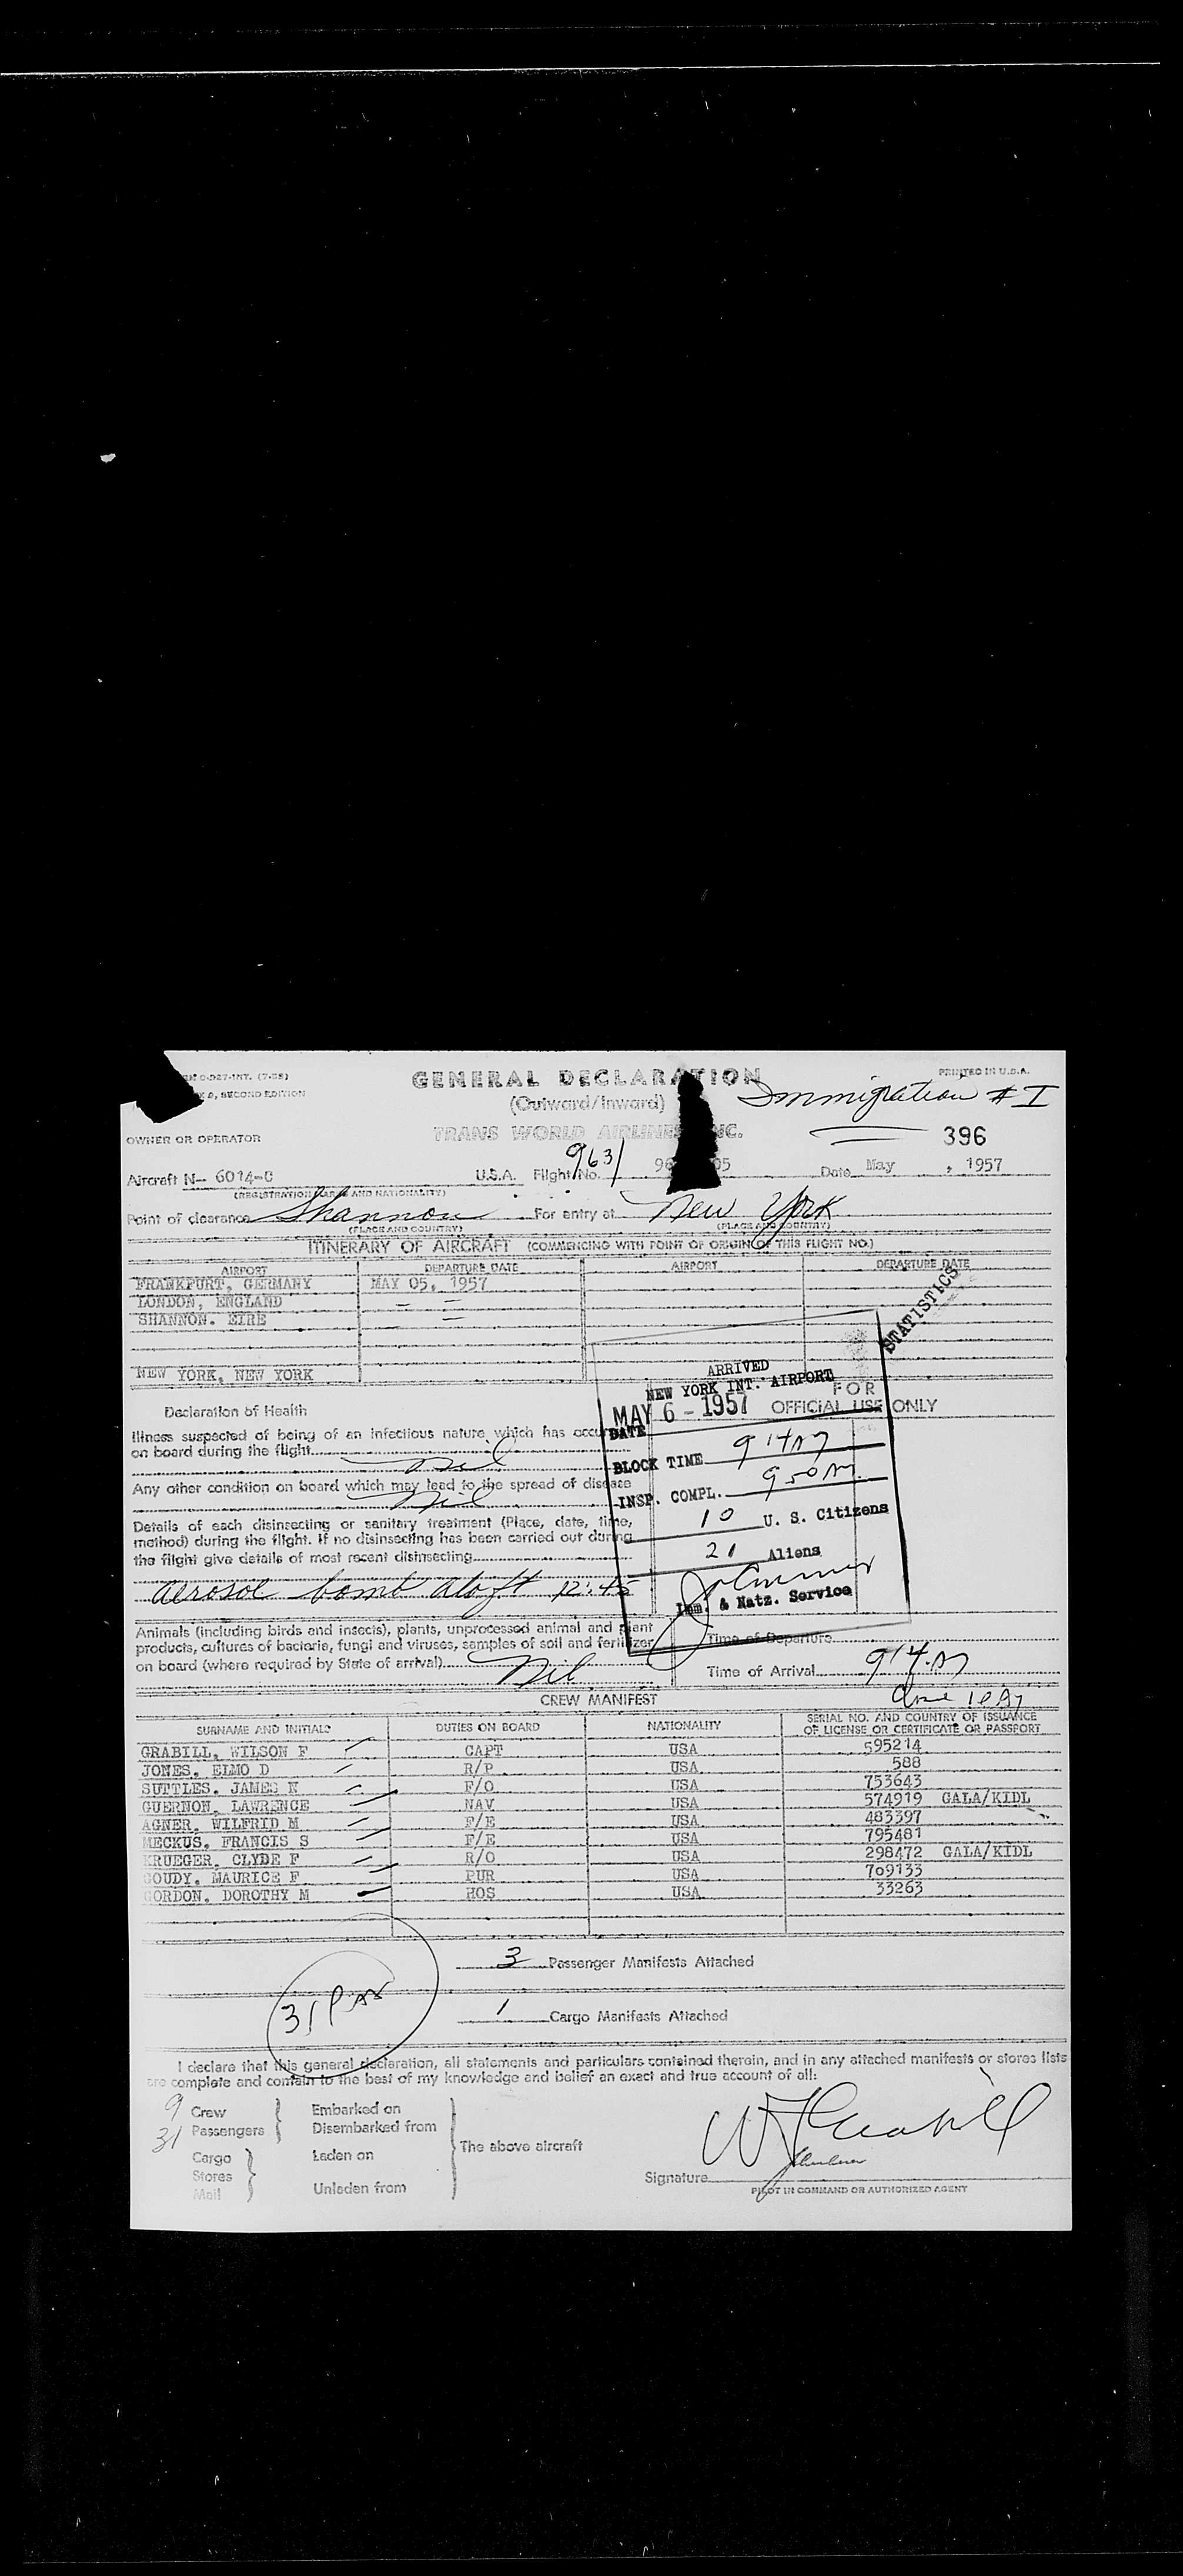 C-527-INT. (7-55)
SECOND EDITION
GENERAL DECLARATION
PRINTED IN U.S.A.
(Outward/Inward)
Immigration # I
OWNER OR OPERATOR
TRANS WORLD AIRLINES INC.
396
Aircraft N- 6014-C U.S.A. Flight No. 9631 Date May , 1957
(REGISTRATION MARKS AND NATIONALITY)
Point of clearance Shannon For entry at New York
(PLACE AND COUNTRY) (PLACE AND COUNTRY)
ITINERARY OF AIRCRAFT (COMMENCING WITH POINT OF ORIGIN OF THIS FLIGHT NO.)
AIRPORT DEPARTURE DATE AIRPORT DEPARTURE DATE
FRANKFURT, GERMANY MAY 05, 1957
LONDON, ENGLAND - =
SHANNON. EIRE - =
STATISTICS
NEW YORK, NEW YORK
ARRIVED
NEW YORK INT. AIRPORT
MAY 6 - 1957
DATE
FOR
OFFICIAL USE ONLY
BLOCK TIME 914A
INSP. COMPL. 950A
10 U. S. Citizens
21 Aliens
Imm. & Natz. Service
Declaration of Health
Illness suspected of being of an infectious nature which has occurred
on board during the flight
Nil
Any other condition on board which may lead to the spread of disease
Nil
Details of each disinsecting or sanitary treatment (Place, date, time,
method) during the flight. If no disinsecting has been carried out during
the flight give details of most recent disinsecting
aerosol bomb aloft 12:45
Animals (including birds and insects), plants, unprocessed animal and plant
products, cultures of bacteria, fungi and viruses, samples of soil and fertilizer
on board (where required by State of arrival) Nil
Time of Departure
Time of Arrival 914A
CREW MANIFEST
SURNAME AND INITIALS DUTIES ON BOARD NATIONALITY SERIAL NO. AND COUNTRY OF ISSUANCE
OF LICENSE OR CERTIFICATE OR PASSPORT
GRABILL, WILSON F CAPT USA 595214
JONES, ELMO D R/P USA 588
SUTTLES, JAMES N F/O USA 753643
GUERNON, LAWRENCE NAV USA 574919 GALA/KIDL
AGNER, WILFRID M F/E USA 483397
MECKUS, FRANCIS S F/E USA 795481
KRUEGER, CLYDE F R/O USA 298472 GALA/KIDL
GOUDY, MAURICE F PUR USA 709133
GORDON, DOROTHY M HOS USA 33263
3 Passenger Manifests Attached
31 Pax
1 Cargo Manifests Attached
I declare that this general declaration, all statements and particulars contained therein, and in any attached manifests or stores lists
are complete and contain to the best of my knowledge and belief an exact and true account of all:
9 Crew Embarked on
31 Passengers Disembarked from
The above aircraft
Cargo Laden on
Stores
Mail Unladen from
W F Grabill
Signature
PILOT IN COMMAND OR AUTHORIZED AGENT